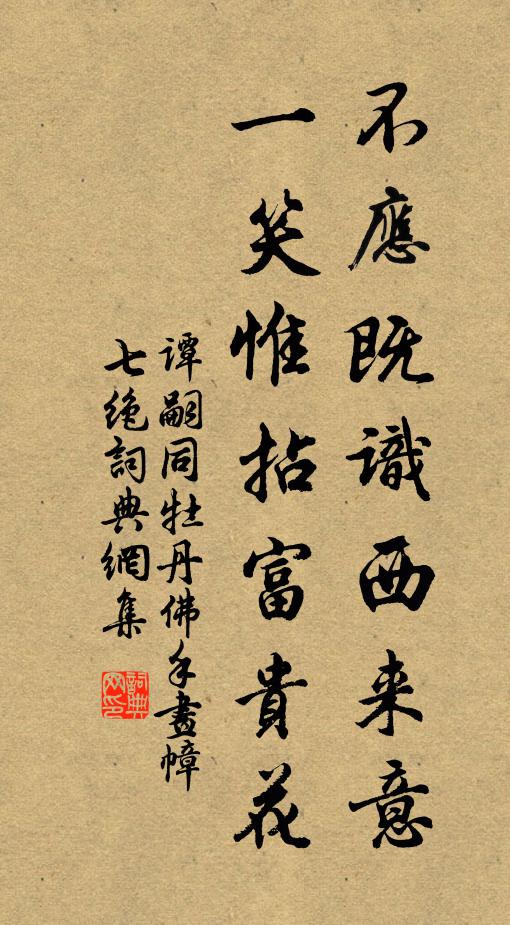 不應既識西来意
一笑惟拈富貴花
谭嗣同牡丹佛手畫幛
七绝詞典網集
詞典网印